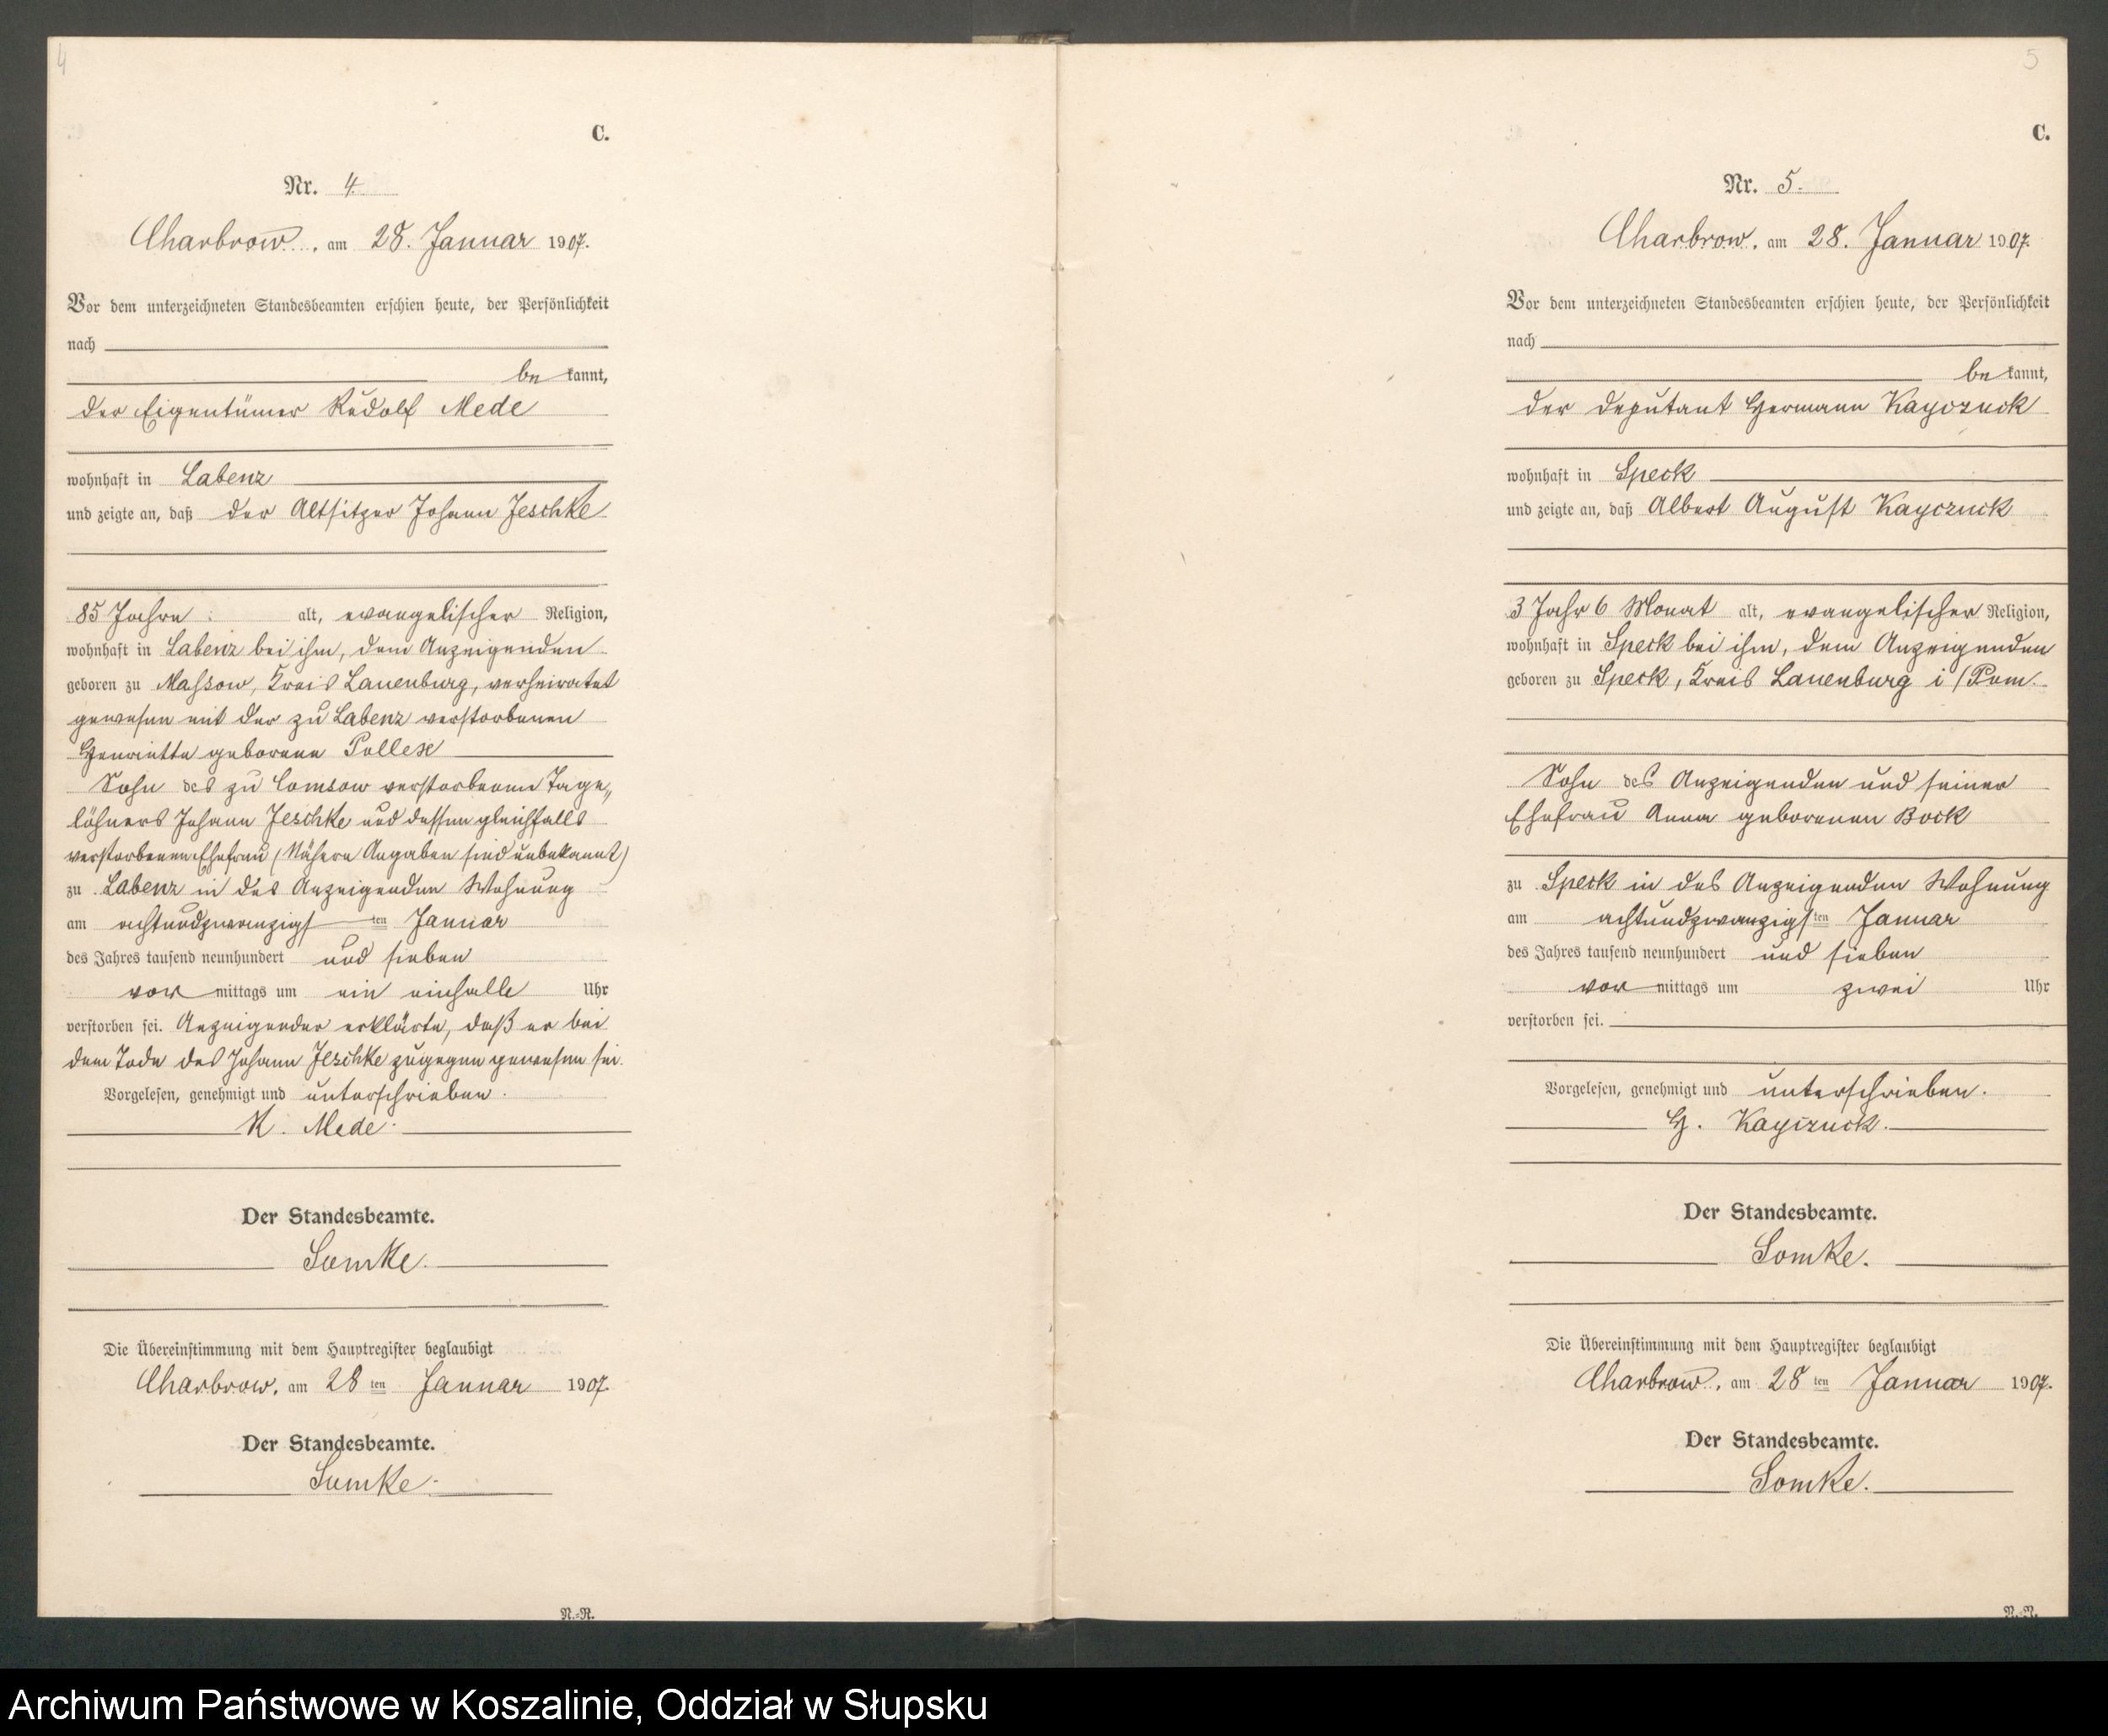 4
C.
Nr. 4.
Charbrow, am 28. Januar 1907.
Vor dem unterzeichneten Standesbeamten erschien heute, der Persönlichkeit
nach
be kannt,
der Eigentümer Rudolf Mede
wohnhaft in Labenz
und zeigte an, daß der Altsitzer Johann Jeschke
85 Jahre alt, evangelischer Religion,
wohnhaft in Labenz bei ihm, dem Anzeigenden
geboren zu Massow, Kreis Lauenburg, verheiratet
gewesen mit der zu Labenz verstorbenen
Henriette geborene Pollex
Sohn des zu verstorbenen Tage„
löhners Johann Jeschke und dessen gleichfalls
verstorbenen Ehefrau (Nähere Angaben sind unbekannt)
zu Labenz in des Anzeigenden Wohnung
am achtundzwanzigs ten Januar
des Jahres tausend neunhundert und sieben
vor mittags um ein einhalb Uhr
verstorben sei. Anzeigender erklärte, daß er bei
dem Tode des Johann Jeschke zugegen gewesen sei.
Vorgelesen, genehmigt und unterschrieben.
R. Mede.
Der Standesbeamte.
Lemke.
Die Übereinstimmung mit dem Hauptregister beglaubigt
Charbrow, am 28 ten Januar 1907.
Der Standesbeamte.
Lemke.
N.-N.
5
C.
Nr. 5.
Charbrow, am 28. Januar 1907.
Vor dem unterzeichneten Standesbeamten erschien heute, der Persönlichkeit
nach
be kannt,
der Deputant Hermann Kayczuck
wohnhaft in Speck
und zeigte an, daß Albert August Kayczuck
3 Jahr 6 Monat alt, evangelischer Religion,
wohnhaft in Speck bei ihm, dem Anzeigenden
geboren zu Speck, Kreis Lauenburg i/Pom.
Sohn des Anzeigenden und seiner
Ehefrau Anna geborenen Bock
zu Speck in des Anzeigenden Wohnung
am achtundzwanzigs ten Januar
des Jahres tausend neunhundert und sieben
vor mittags um zwei Uhr
verstorben sei.
Vorgelesen, genehmigt und unterschrieben.
H. Kayczuck.
Der Standesbeamte.
Lemke.
Die Übereinstimmung mit dem Hauptregister beglaubigt
Charbrow, am 28 ten Januar 1907.
Der Standesbeamte.
Lemke.
N.-N.
Archiwum Państwowe w Koszalinie, Oddział w Słupsku